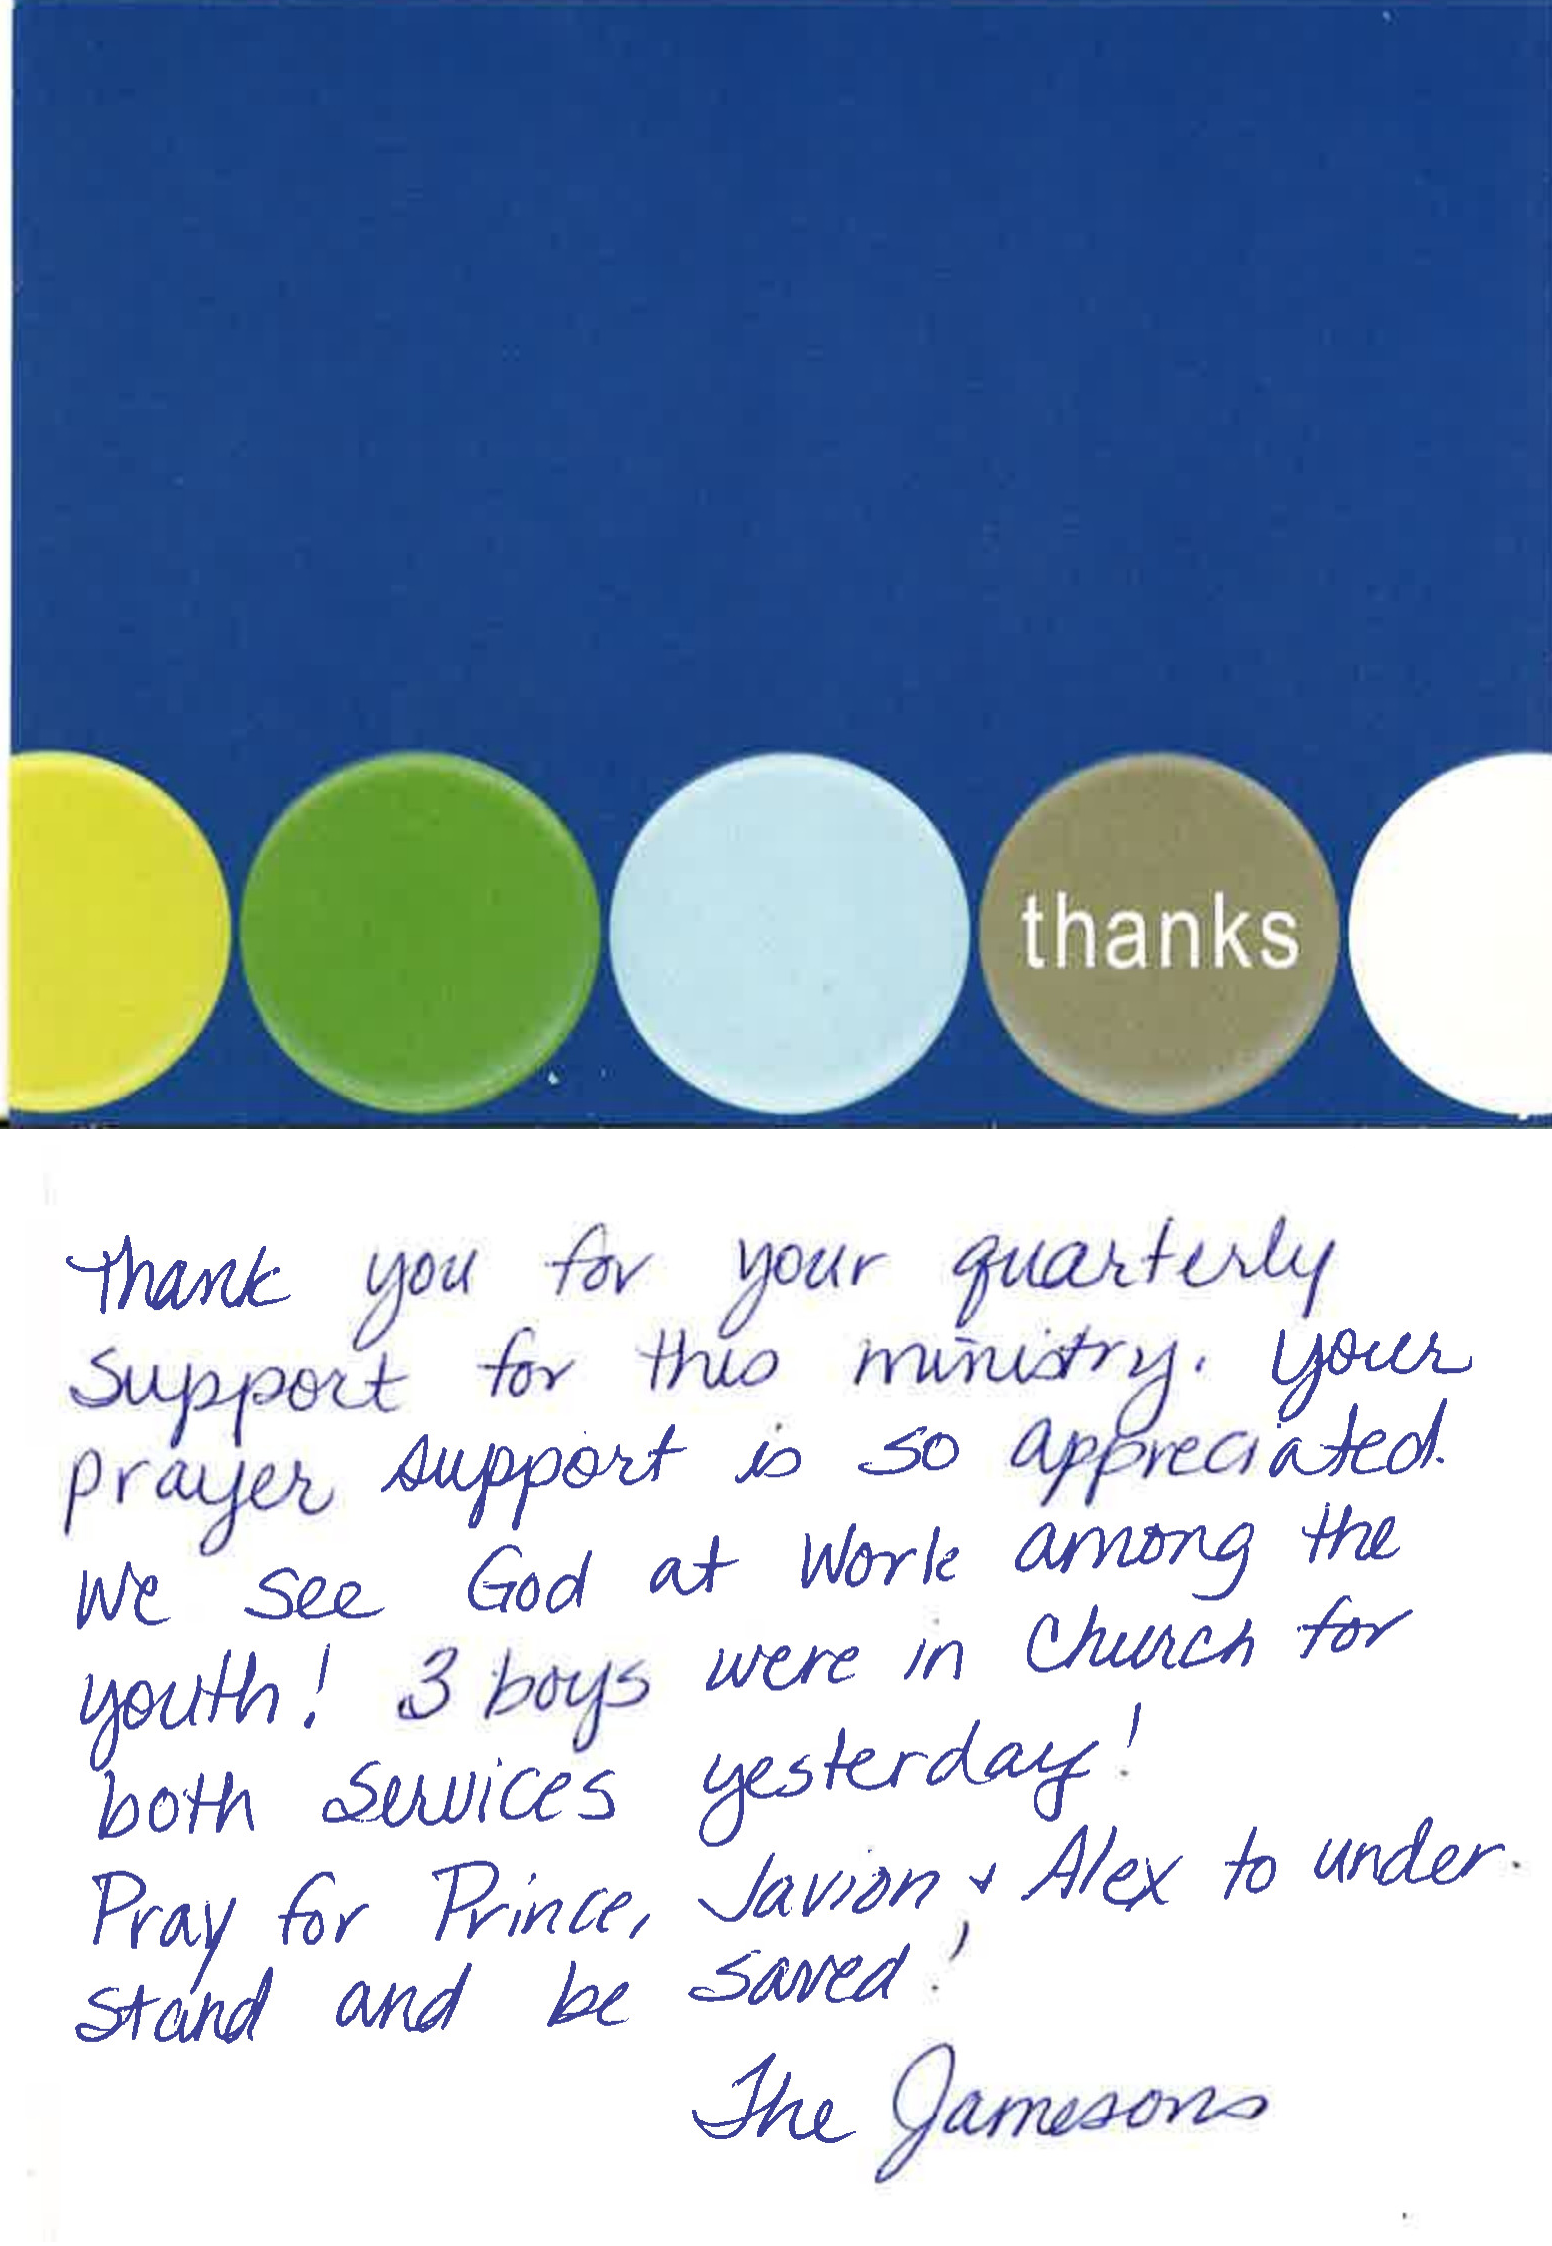 thanks
Thank you for your quarterly
Support for this ministry. Your
prayer support is so appreciated.
We see God at Work among the
youth! 3 boys were in Church for
both Services yesterday!
Pray for Prince, Javion + Alex to under
stand and be saved!
The Jamesons